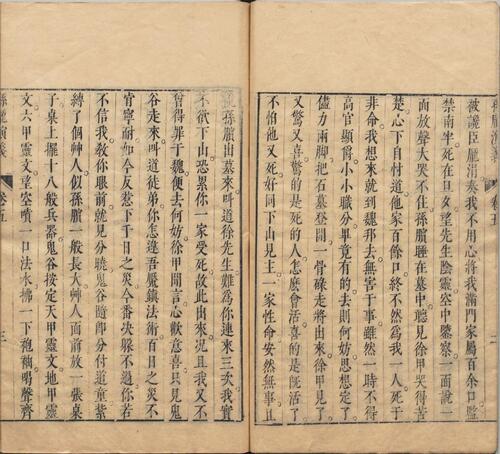 被讒臣龐涓奏我不用心將我滿門家屬百餘口監
禁南牢死在旦夕望先生陰靈空中鑒察一面說一
面放聲大哭不住孫臏睡在墓中聽見徐甲哭得苦
楚心下自忖道他家百餘口終不然為我一人死于
非命我想來就到魏邦去無害于事雖然一時不得
高官顯爵小小職分畢竟有的去則何妨思想定了
儘力兩脚把石墓登開一骨碌走將出來徐甲見了
又驚又喜驚的是死的人怎麼會活喜的是既活了
不怕他又死好同下山見主一家性命安然無事且
說孫臏出墓來叫道徐先生難為你連來三次我實
不欲下山恐累你一家受死故此出來况且我又不
曾得罪于魏便去何妨徐甲聞言心歡意喜只見鬼
谷走來叫道徒弟你怎違吾魘鎮法術百日之災不
肯寧耐如今反惹下千日之災今番决躲不過你若
不信我教你眼前就見分曉鬼谷隨卽分付道童紥
縛了個艸人似孫臏一般長大艸人面前放一張桌
子桌上擺十八般兵器鬼谷按定天甲靈文地甲靈
文六甲靈文望空噴一口法水拂一下袍袖喝聲齊
孫龐演義 卷五 三